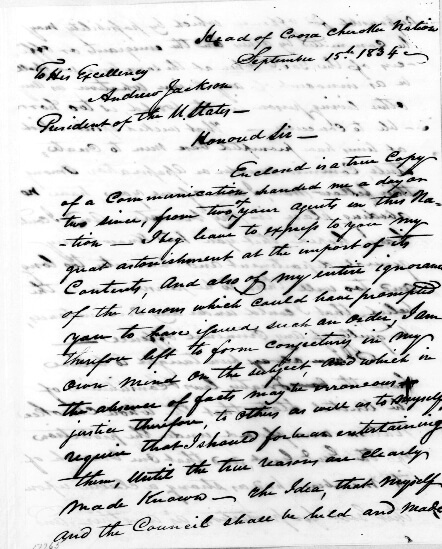 Head of Coosa Cherokee Nation
September 15th 1834
To His Excellency
Andrew Jackson
President of the U States —
Honoud Sir —
Enclosed is a true Copy
of a Communication handed me a day or
two since, from two of your agents in this Na-
-tion — I beg leave to express to you my
great astonishment at the import of its
Contents, And also of my entire ignorance
of the reasons which could have prompted
you to have issued such an order, I am
therefore left to from conjectures in my
own mind on the subject and which in
the absence of facts may be erroneous
justice therefore, to others as well as to Myself
require that I should forbear entertaining
them, Until the true reasons are clearly
made Known — the Idea, that Myself
and the Council shall be held and made